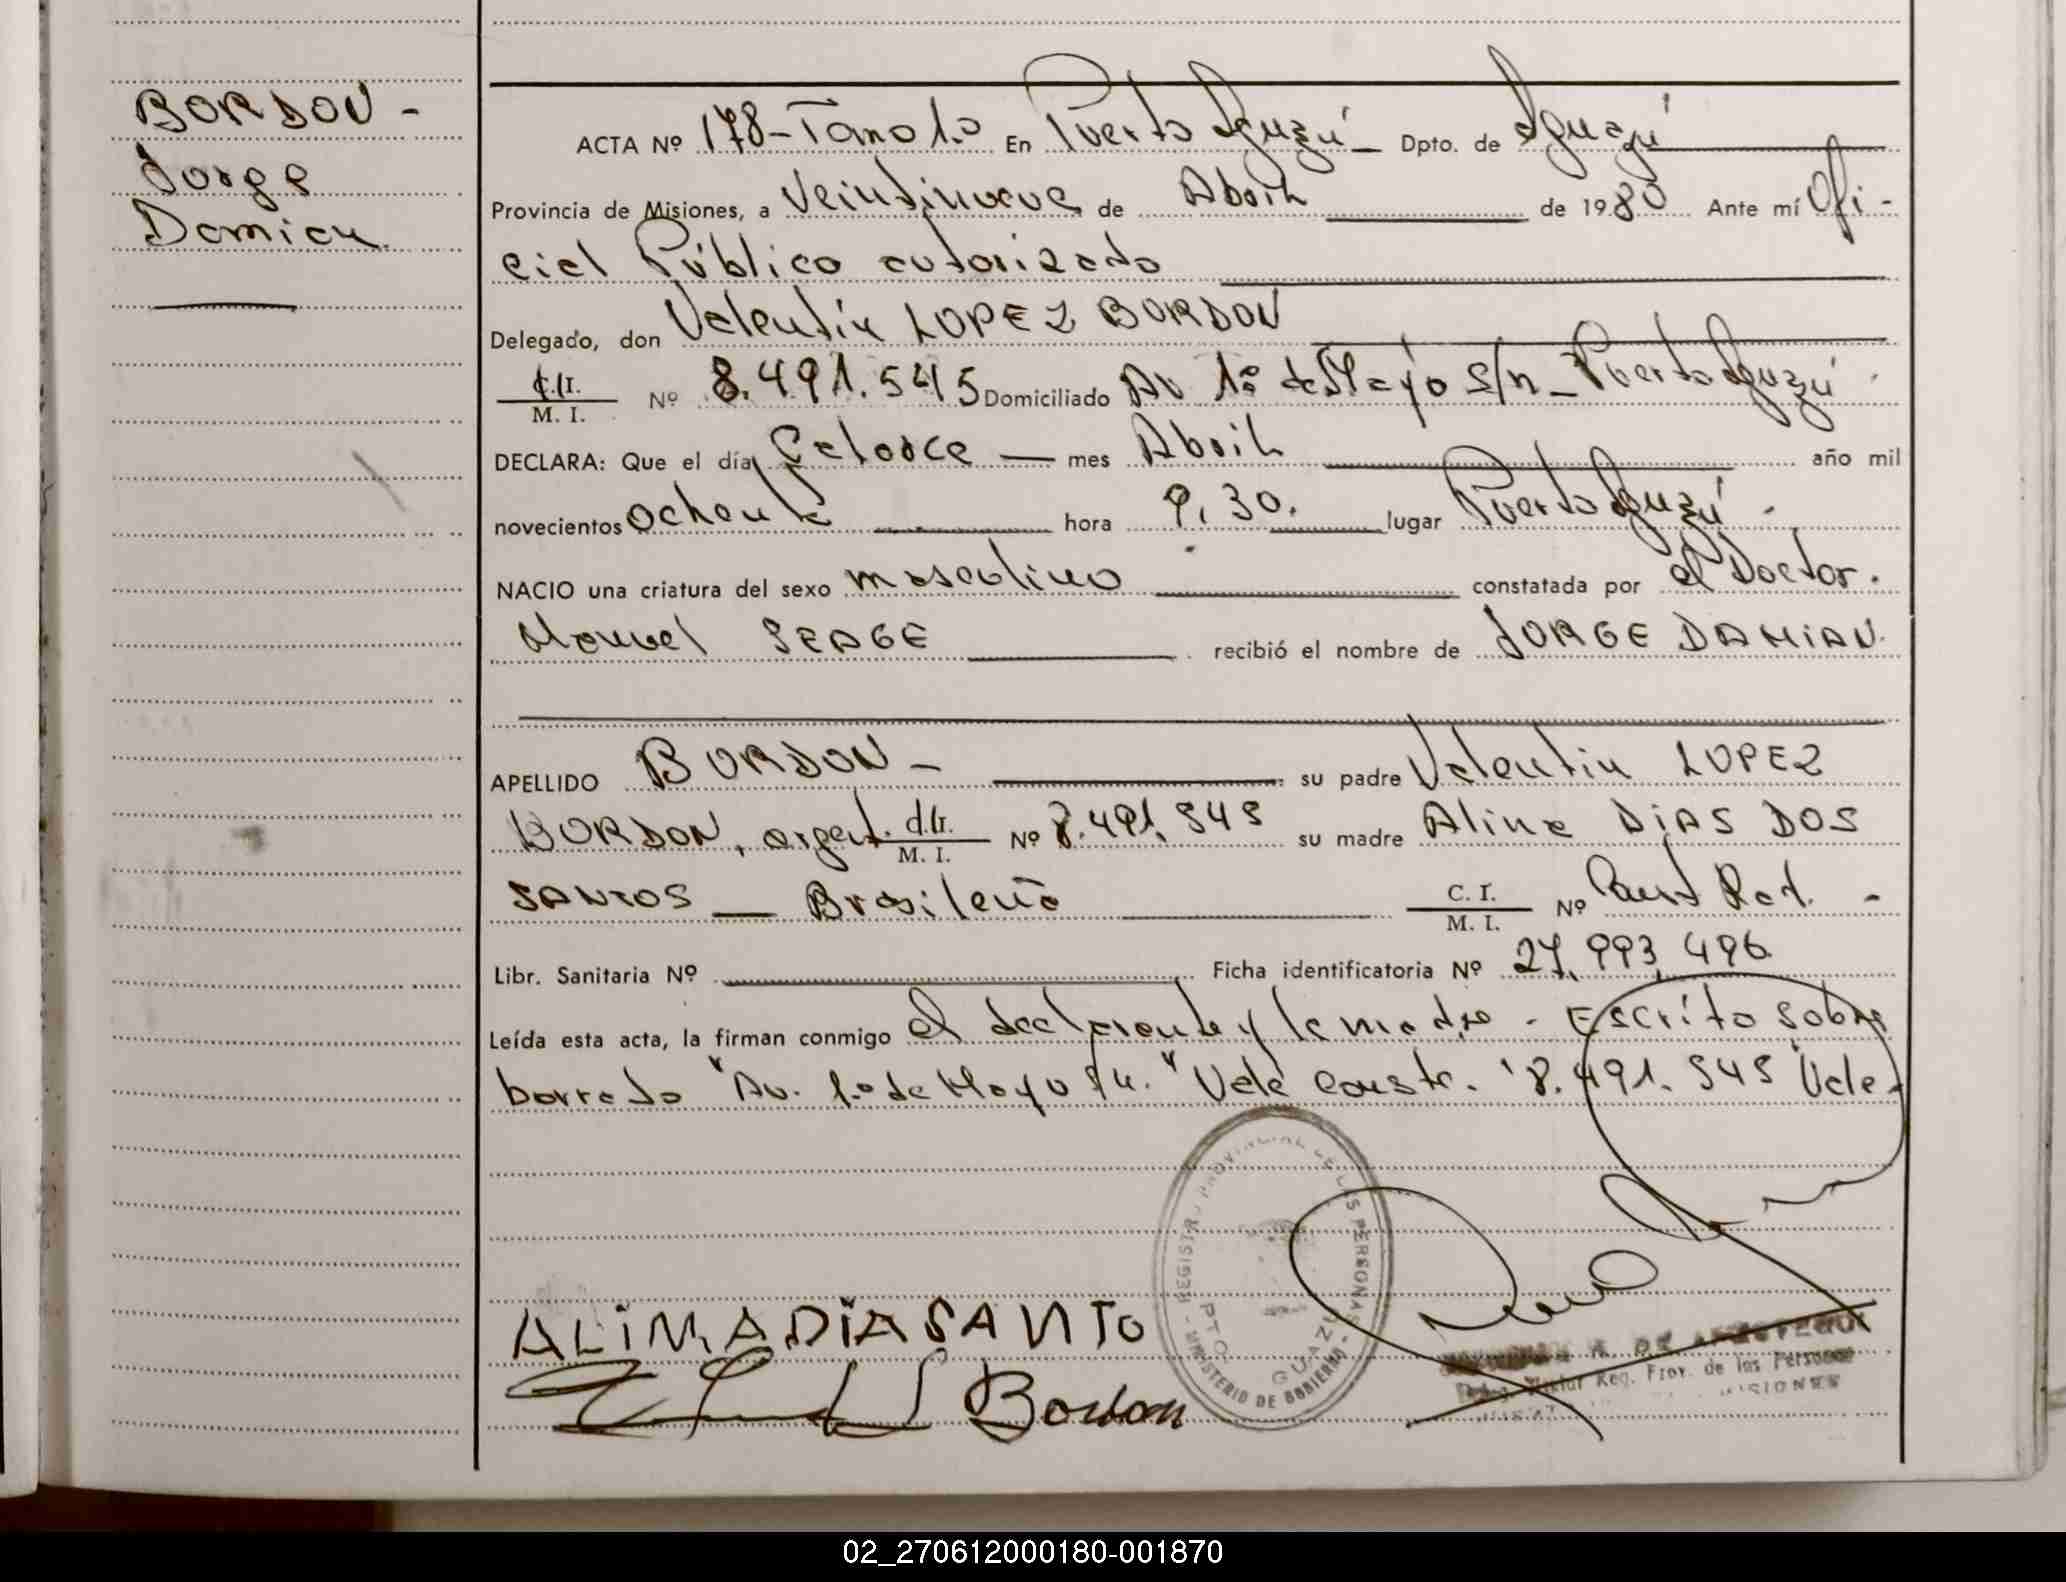 BORDON -
Jorge
Damian
ACTA Nº 178-Tomo 1º En Puerto Iguazú Dpto. de Iguazú
Provincia de Misiones, a Veintinueve de Abril de 1980 Ante mí Ofi-
cial Público autorizado
Delegado, don Valentín LOPEZ BORDON
C.I. M. I. Nº 8.491.545 Domiciliado Av 1º de Mayo s/n - Puerto Iguazú -
DECLARA: Que el día Catorce mes Abril año mil
novecientos ochenta hora 9,30. lugar Puerto Iguazú -
NACIO una criatura del sexo masculino constatada por el Doctor.
Manuel SEAGE recibió el nombre de JORGE DAMIAN.
APELLIDO BORDON - su padre Valentin LOPEZ
BORDON, argent. M. I. Nº 8.491.545 su madre Alina DIAS DOS
SANTOS - Brasileña C. I. M. I. Nº
Libr. Sanitaria Nº Ficha identificatoria Nº 27.993.496
Leída esta acta, la firman conmigo el declarante y la madre - Escrito sobre
borrado "Av. 1º de Mayo s/n." Vale "8.491.545" Vale.
REGISTR. PROVINCIAL DE LAS PERSONAS
PTO. IGUAZU
- MINISTERIO DE GOBIERNO -
ALINA DIA SANTO
Bordon
Reg. Prov. de las Personas
MISIONES
02_270612000180-001870